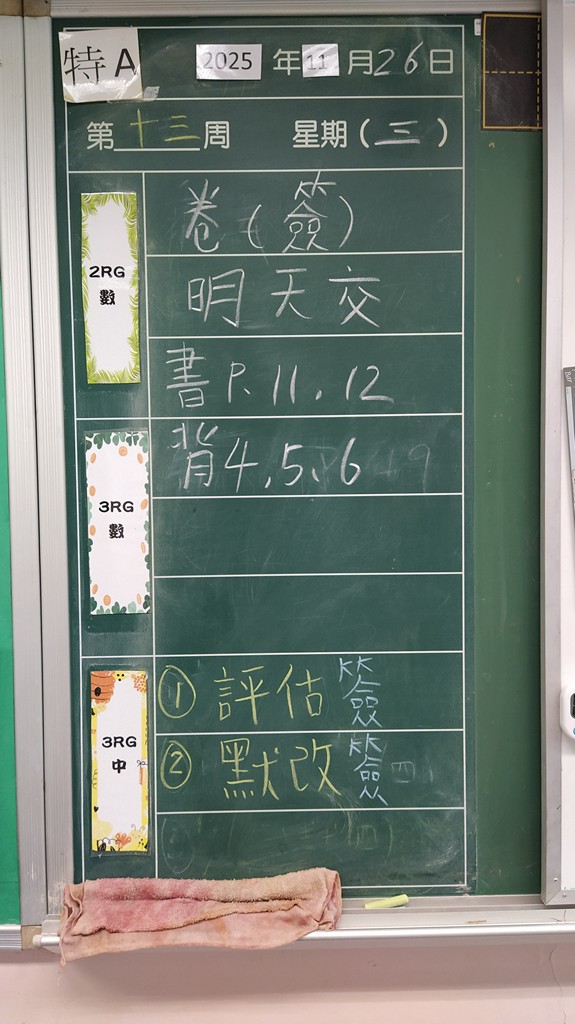 特A
2025年11月26日
第十三周 星期(三)
2RG
數
卷(簽)
明天交
書P.11.12
3RG
數
背4.5.6
3RG
中
①評估簽
②默改簽